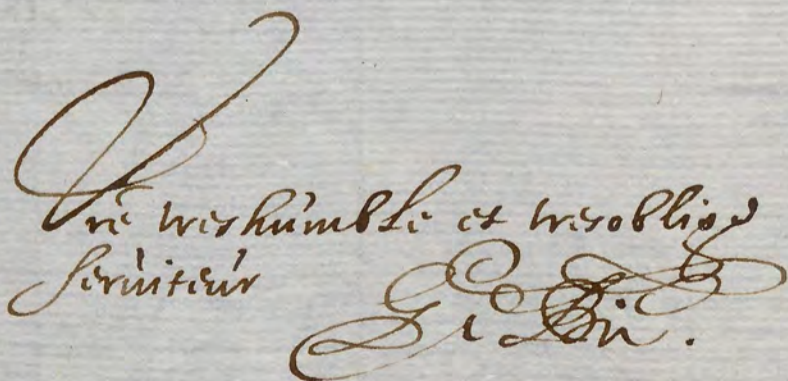 Vr̄e treshumble et tresobligé
seruiteur